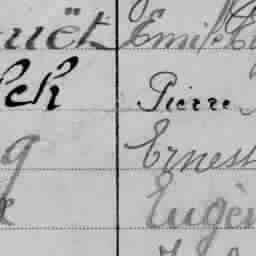 uët Emile
ck Pierre
g Ernest
Eugèn